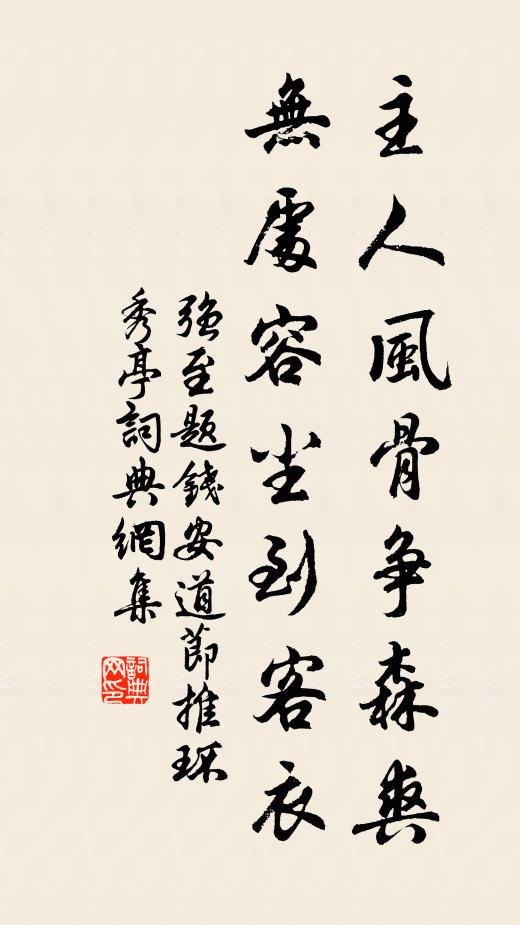 主人風骨爭森爽
無處容尘到客衣
强至題錢安道節推环
秀亭詞典網集
詞典网印